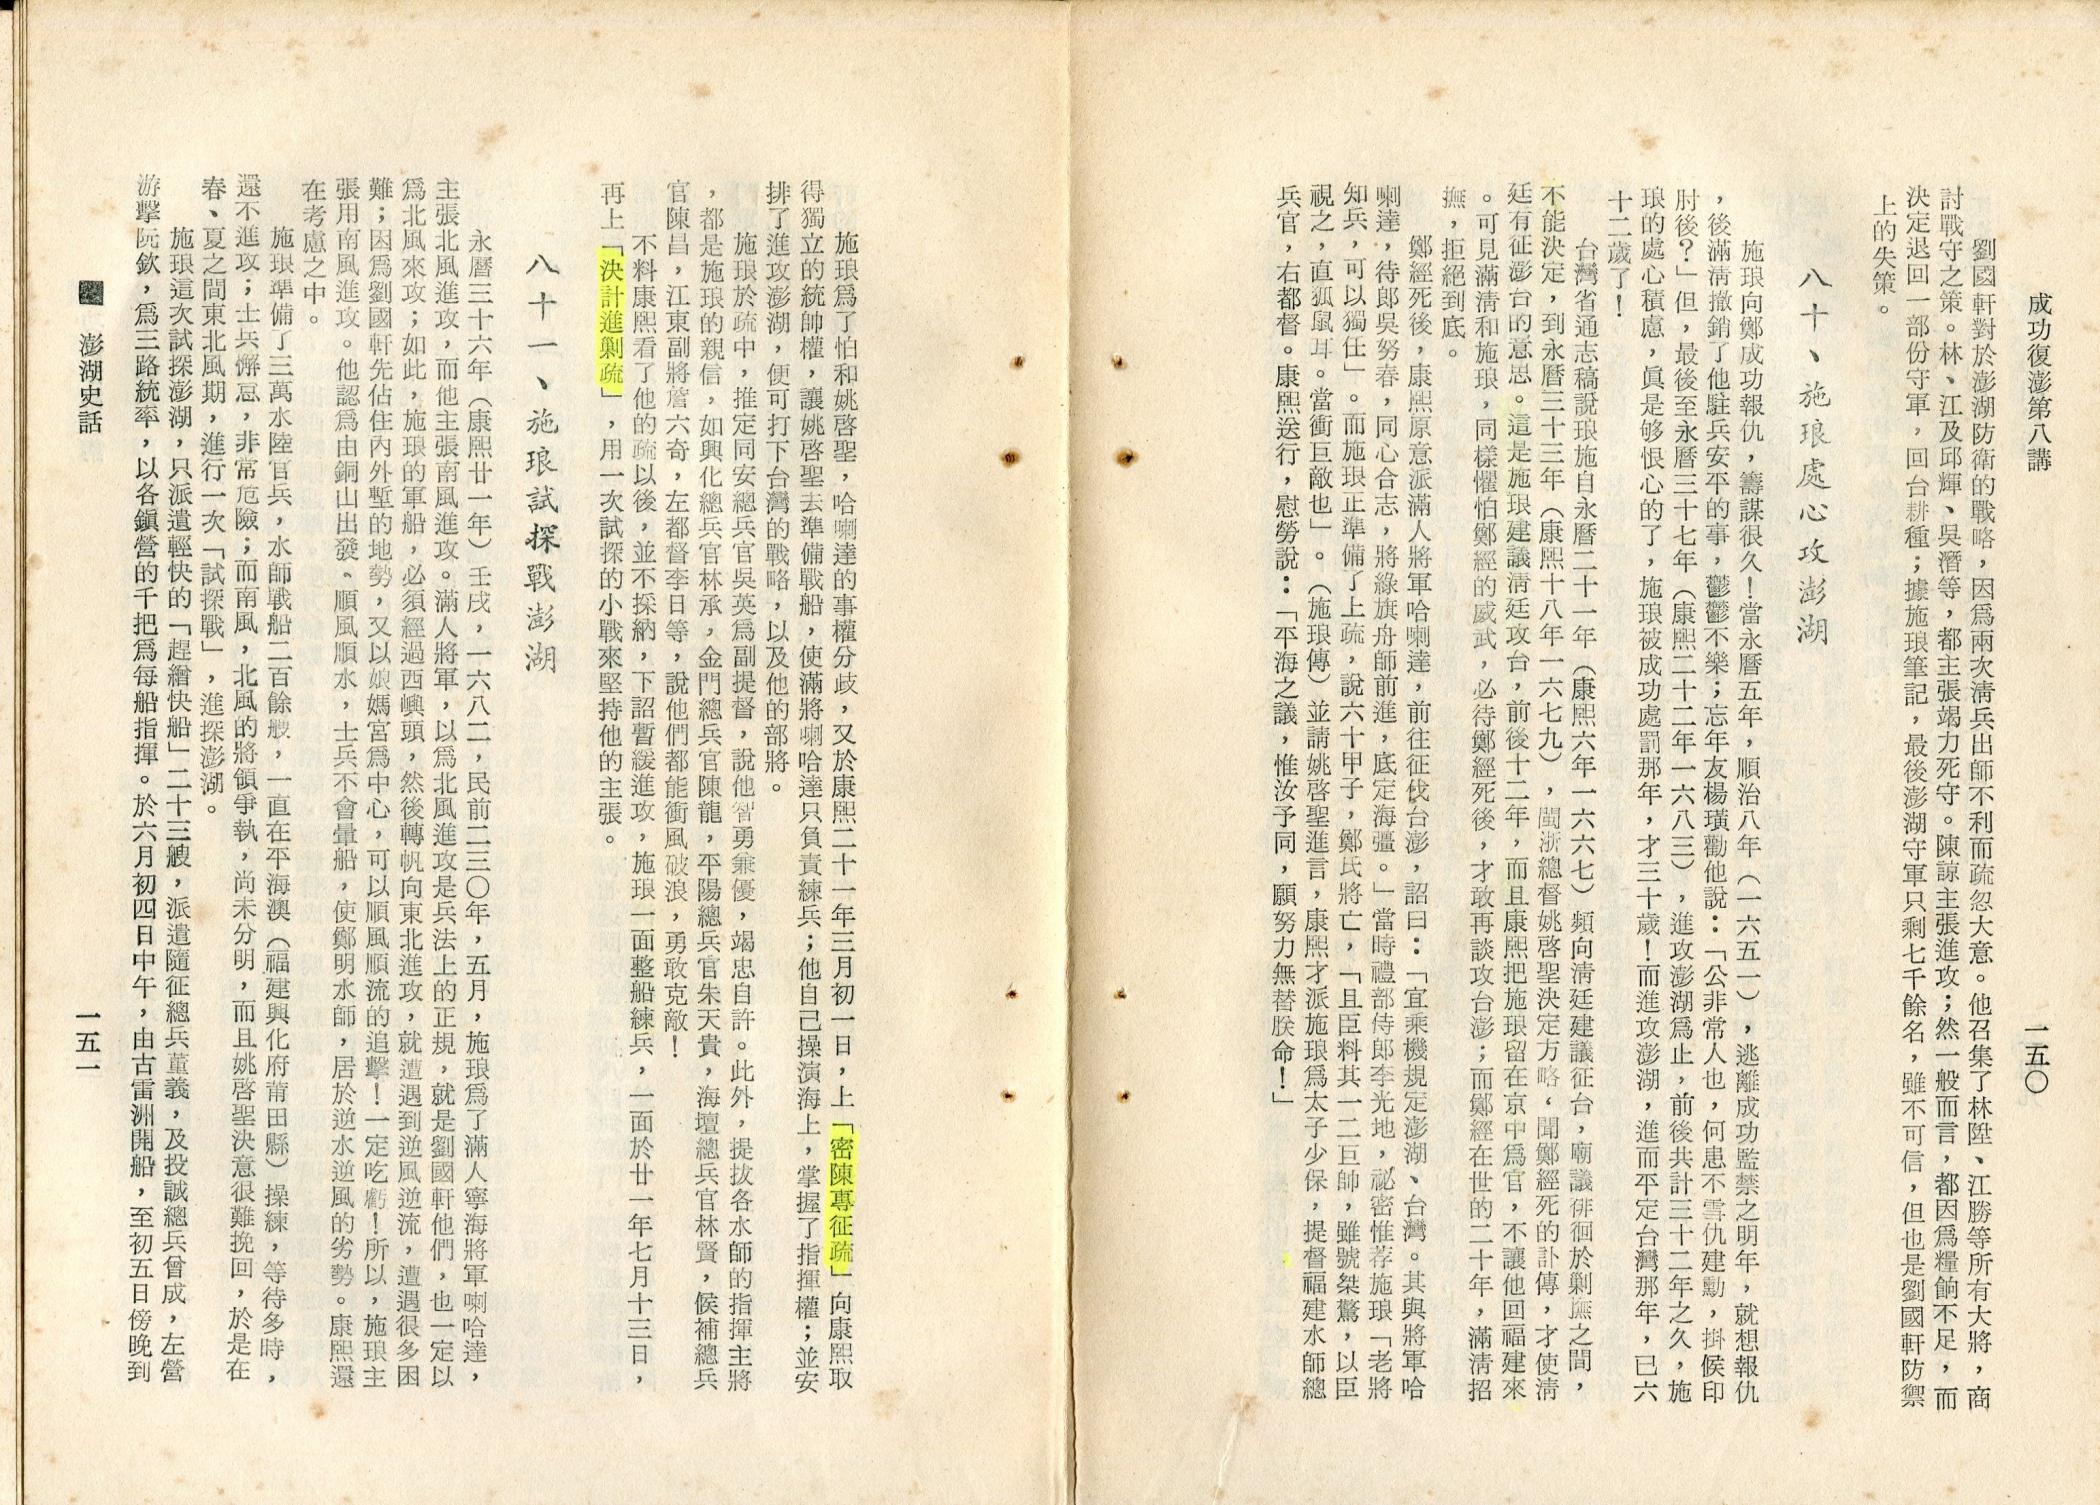 成功復澎第八講
一五〇
劉國軒對於澎湖防衛的戰略，因爲兩次清兵出師不利而疏忽大意。他召集了林陞、江勝等所有大將，商
討戰守之策。林、江及邱輝、吳潛等，都主張竭力死守。陳諒主張進攻；然一般而言，都因爲糧餉不足，而
決定退回一部份守軍，回台耕種；據施琅筆記，最後澎湖守軍只剩七千餘名，雖不可信，但也是劉國軒防禦
上的失策。
八十、施琅處心攻澎湖
施琅向鄭成功報仇，籌謀很久！當永曆五年，順治八年（一六五一），逃離成功監禁之明年，就想報仇
，後滿清撤銷了他駐兵安平的事，鬱鬱不樂；忘年友楊璜勸他說：「公非常人也，何患不雪仇建勳，掛侯印
肘後？」但，最後至永曆三十七年（康熙二十二年一六八三），進攻澎湖爲止，前後共計三十二年之久，施
琅的處心積慮，眞是够恨心的了，施琅被成功處罰那年，才三十歲！而進攻澎湖，進而平定台灣那年，已六
十二歲了！
台灣省通志稿說琅施自永曆二十一年（康熙六年一六六七）頻向清廷建議征台，廟議徘徊於剿撫之間，
不能決定，到永曆三十三年（康熙十八年一六七九），閩浙總督姚啓聖決定方略，聞鄭經死的訃傳，才使清
廷有征澎台的意思。這是施琅建議清廷攻台，前後十二年，而且康熙把施琅留在京中爲官，不讓他回福建來
。可見滿清和施琅，同樣懼怕鄭經的威武，必待鄭經死後，才敢再談攻台澎；而鄭經在世的二十年，滿清招
撫，拒絕到底。
鄭經死後，康熙原意派滿人將軍哈喇達，前往征伐台澎，詔曰：「宜乘機規定澎湖、台灣。其與將軍哈
喇達，待郎吳努春，同心合志，將綠旗舟師前進，底定海彊。」當時禮部侍郎李光地，祕密惟荐施琅「老將
知兵，可以獨任」。而施琅正準備了上疏，說六十甲子，鄭氏將亡，「且臣料其一二巨帥，雖號桀驁，以臣
視之，直狐鼠耳。當衝巨敵也」。（施琅傳）並請姚啓聖進言，康熙才派施琅爲太子少保，提督福建水師總
兵官，右都督。康熙送行，慰勞說：「平海之議，惟汝予同，願努力無替朕命！」
施琅爲了怕和姚啓聖，哈喇達的事權分歧，又於康熙二十一年三月初一日，上「密陳專征疏」向康熙取
得獨立的統帥權，讓姚啓聖去準備戰船，使滿將喇哈達只負責練兵；他自己操演海上，掌握了指揮權；並安
排了進攻澎湖，便可打下台灣的戰略，以及他的部將。
施琅於疏中，推定同安總兵官吳英爲副提督，說他智勇兼優，竭忠自許。此外，提拔各水師的指揮主將
，都是施琅的親信，如興化總兵官林承，金門總兵官陳龍，平陽總兵官朱天貴，海壇總兵官林賢，候補總兵
官陳昌，江東副將詹六奇，左都督李日等，說他們都能衝風破浪，勇敢克敵！
不料康熙看了他的疏以後，並不採納，下詔暫緩進攻，施琅一面整船練兵，一面於廿一年七月十三日，
再上「決計進剿疏」，用一次試探的小戰來堅持他的主張。
八十一、施琅試探戰澎湖
永曆三十六年（康熙廿一年）壬戌，一六八二，民前二三〇年，五月，施琅爲了滿人寧海將軍喇哈達，
主張北風進攻，而他主張南風進攻。滿人將軍，以爲北風進攻是兵法上的正規，就是劉國軒他們，也一定以
爲北風來攻；如此，施琅的軍船，必須經過西嶼頭，然後轉帆向東北進攻，就遭遇到逆風逆流，遭遇很多困
難；因爲劉國軒先佔住內外塹的地勢，又以娘媽宮爲中心，可以順風順流的追擊！一定吃虧！所以，施琅主
張用南風進攻。他認爲由銅山出發、順風順水，士兵不會暈船，使鄭明水師，居於逆水逆風的劣勢。康熙還
在考慮之中。
施琅準備了三萬水陸官兵，水師戰船二百餘艘，一直在平海澳（福建興化府莆田縣）操練，等待多時，
還不進攻；士兵懈怠，非常危險；而南風，北風的將領爭執，尚未分明，而且姚啓聖決意很難挽回，於是在
春、夏之間東北風期，進行一次「試探戰」，進探澎湖。
施琅這次試探澎湖，只派遣輕快的「趕繒快船」二十三艘，派遣隨征總兵董義，及投誠總兵曾成，左營
游擊阮欽，爲三路統率，以各鎭營的千把爲每船指揮。於六月初四日中午，由古雷洲開船，至初五日傍晚到
澎湖史話
一五一